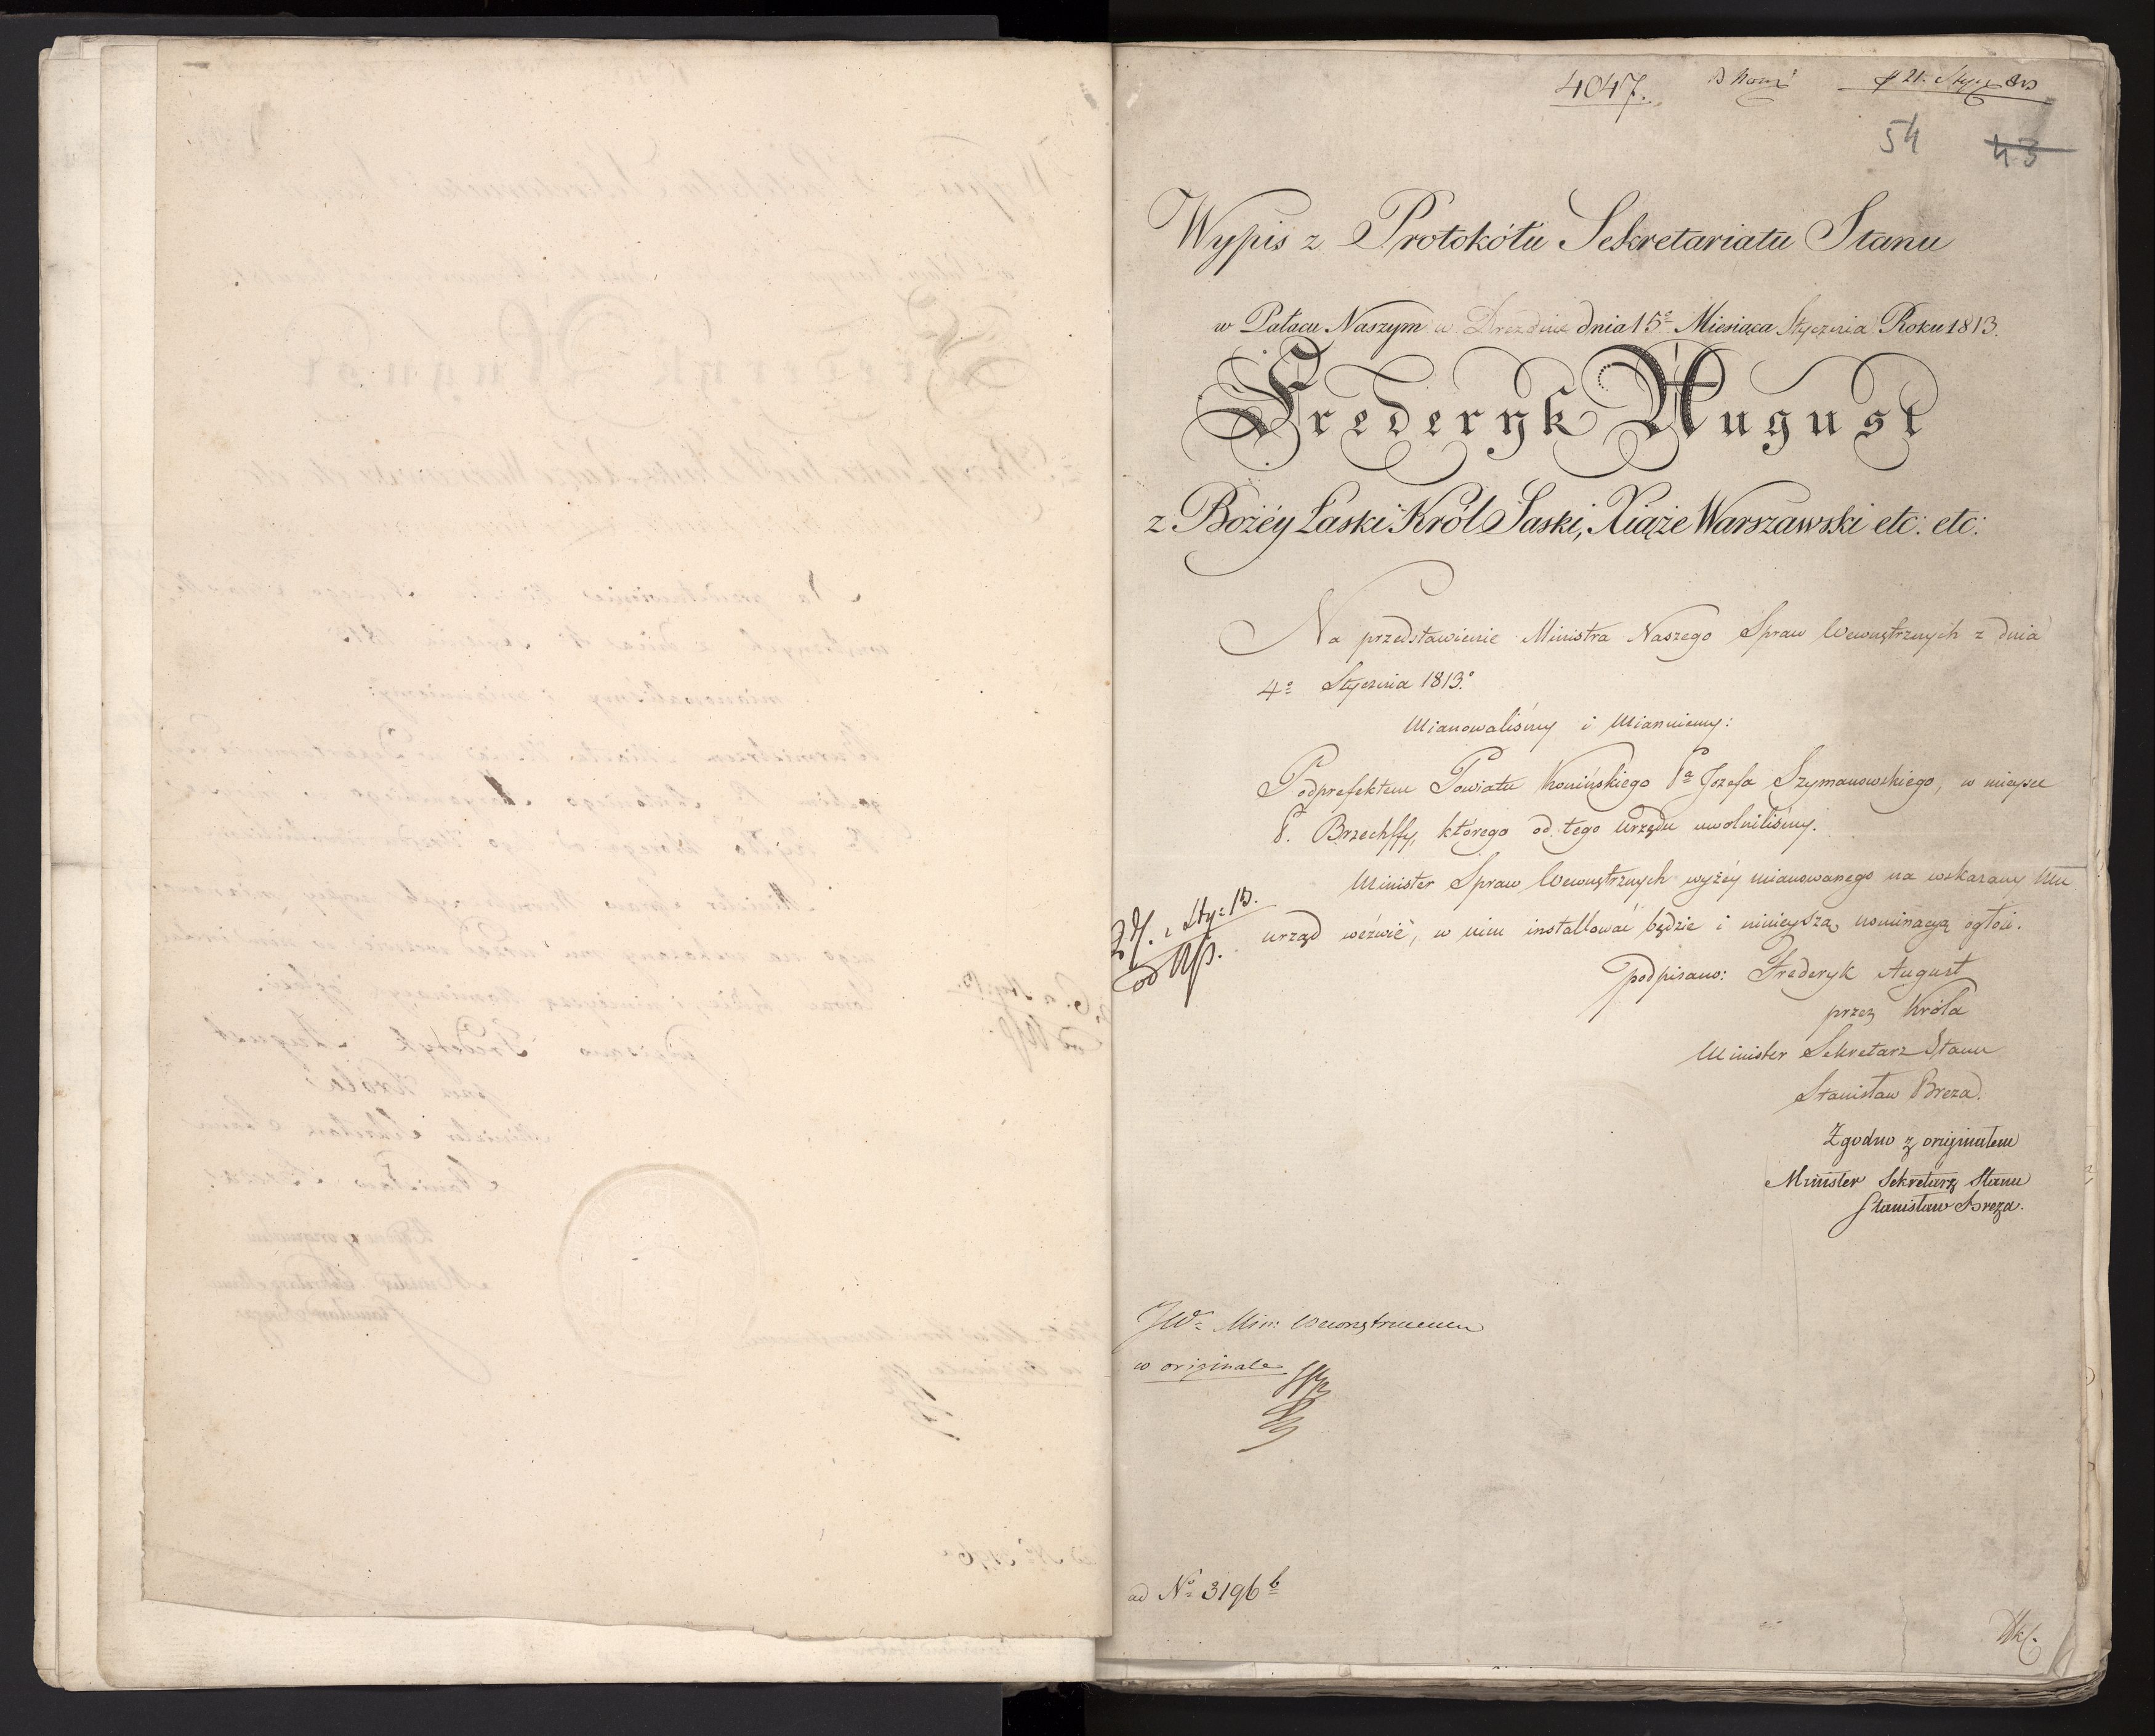 4047.
54 43
Wypis z Protokółu Sekretariatu Stanu
w Pałacu Naszym w Dreźdnie dnia 15º Miesiąca Stycznia Roku 1813.
Fryderyk August
z Bożéy Łaski Król Saski, Xiąże Warszawski etc: etc:
Na przedstawienie Ministra Naszego Spraw Wewnętrznych z dnia
4º Stycznia 1813º
Mianowaliśmy i Mianuiemy:
Podprefektem Powiatu Konińskiego Pª Jozefa Szymanowskiego, w mieysce
P. Brzechffy, którego od tego urzędu uwolniliśmy.
Minister Spraw Wewnętrznych wyżéy mianowanego na wskazany Mu
urząd wézwie, w nim installować będzie i ninieyszą nominacyą ogłosi.
podpisano: Frederyk August
przez Króla
Minister Sekretarz Stanu
Stanisław Breza.
Zgodno z oryginałem
Minister Sekretarz Stanu
Stanisław Breza.
JWº Min: Wewnętrznemu
w originale
ad Nº 3196 b